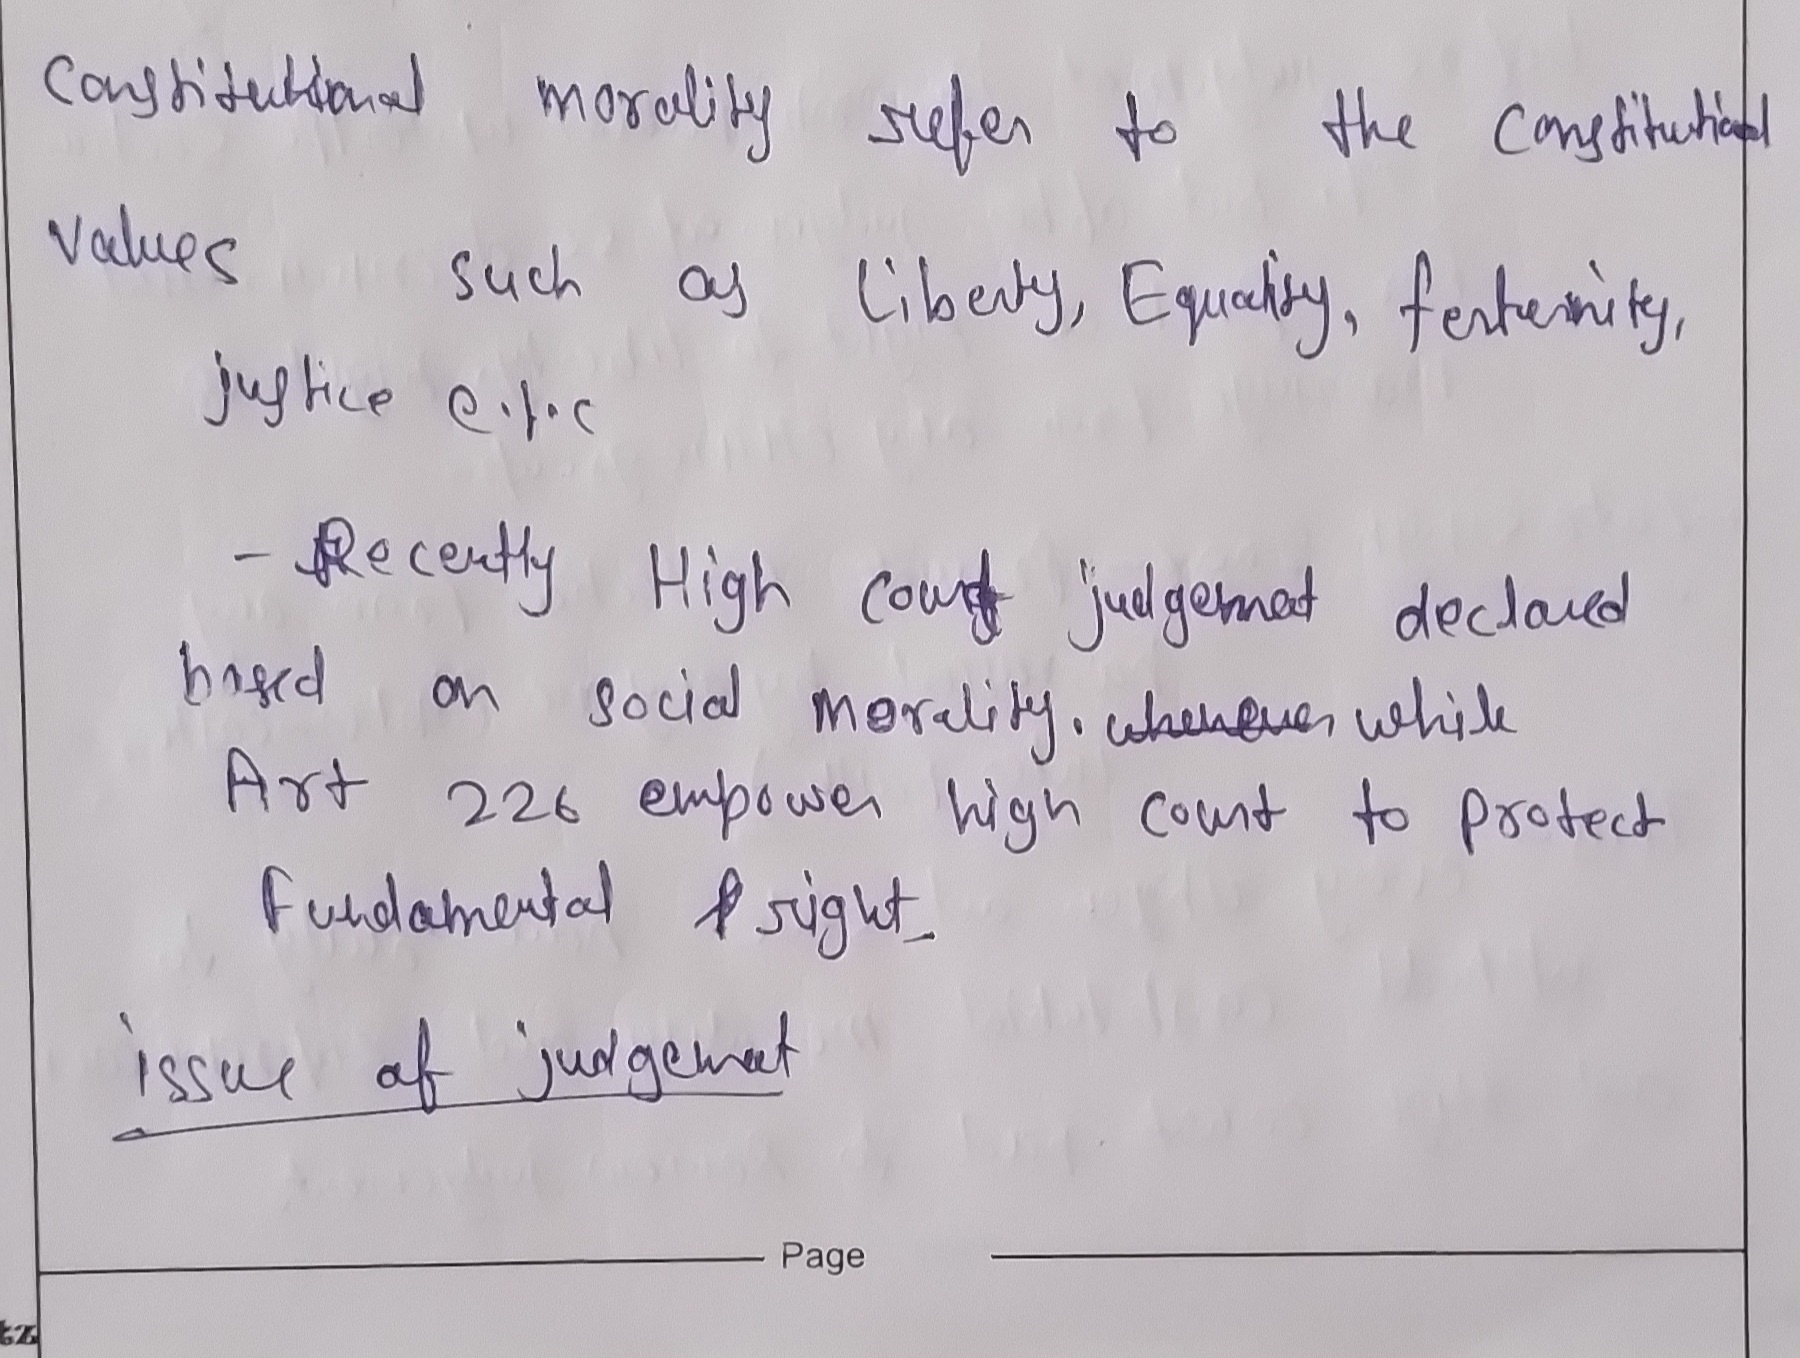 Constitutional morality refer to the Constitutional
values such as liberty, Equality, ferternity,
justice e.t.c
- Recently High court judgemet declared
based on social morality. whenever while
Art 226 empower high court to protect
fundamental right
issue of judgemet
Page